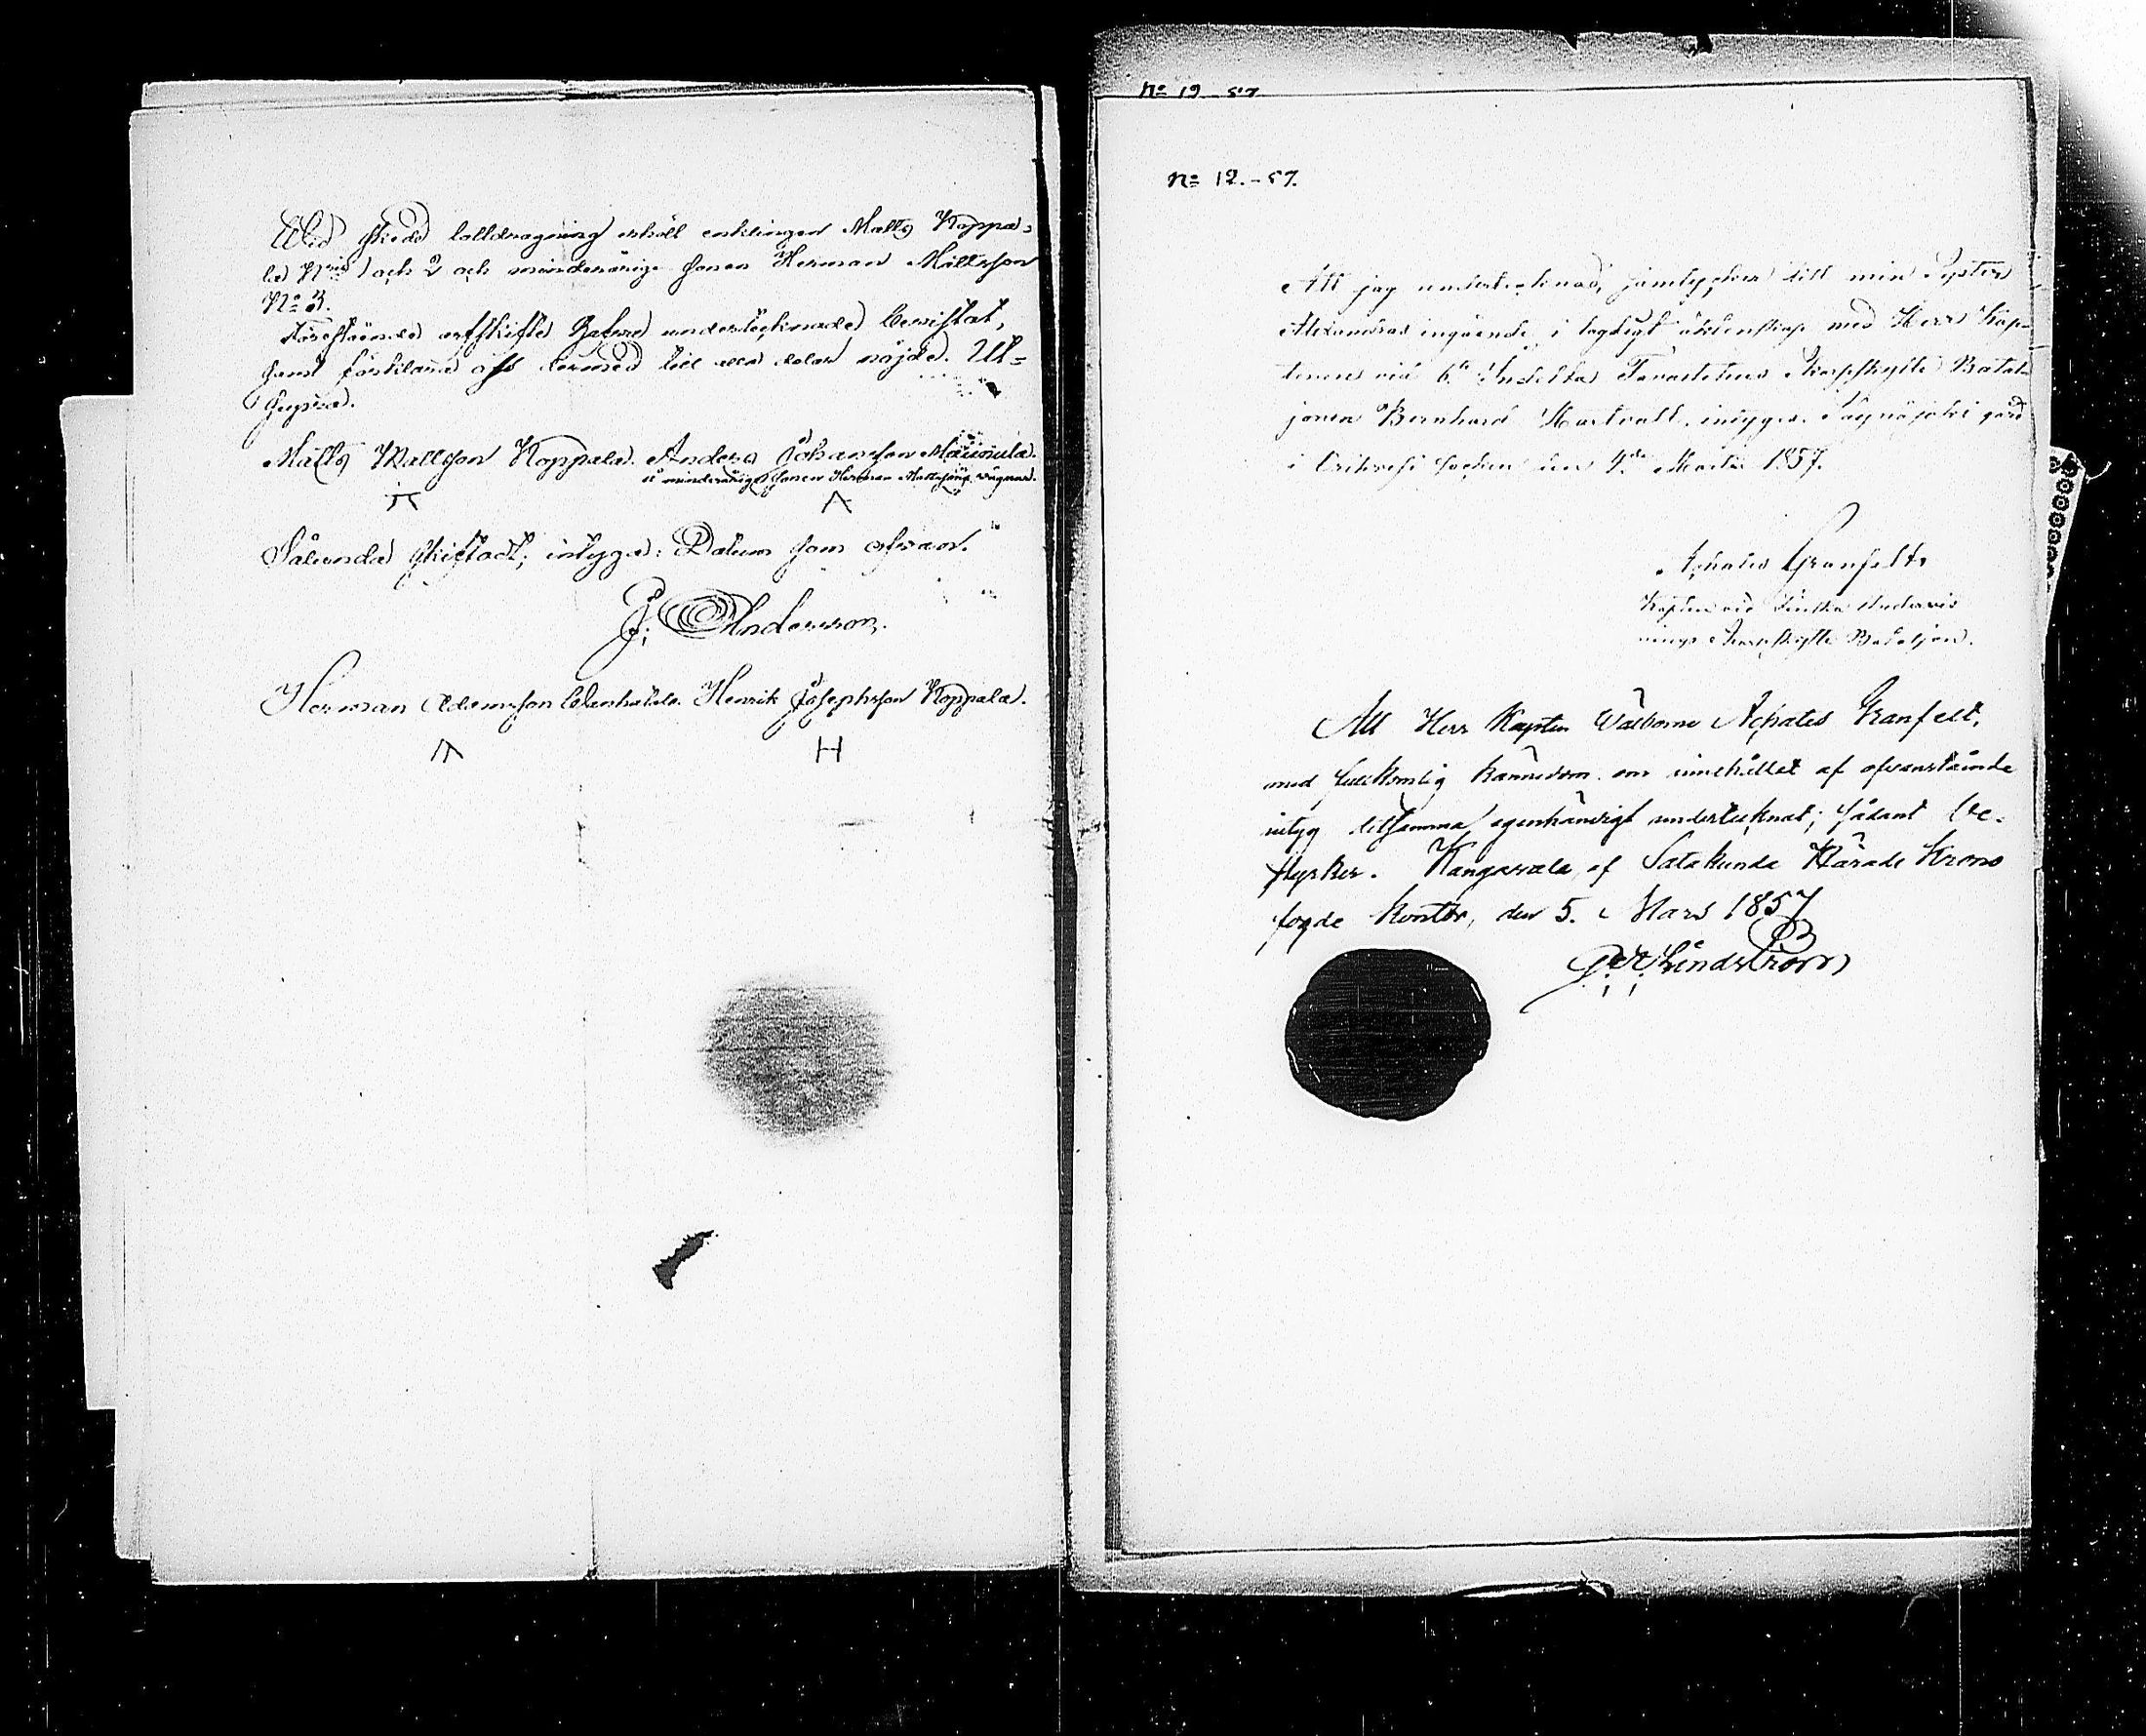 Wid skedd lottdragning erhöll enklingen Matts Koppa-
la N:ris 1 och 2 och minderårige sonen Herman Mattsson
N:o 3.
Förestående arfskifte hafve undertecknade bevistat,
samt förklara oss dermed till alla delar nöjde. Ut-
supra.
Matts Mattsson Koppala. Anders Johansson Mäumula.
å minderårige sonen Herman Mattssons vägnar.
Sålunda skiftadt, intyga: Datum som ofvan.
J. Andersson.
Herman Adamsson Wanhatalo. Henrik Josephsson Koppala.
H
No 12 57
No 12.-57.
Att jag undertecknad, samtycker till min Syster
Alexandras ingående i lagligt äktenskap med Herr Kap-
tenen vid 6:te Indelta Tavastehus Skarpskytte Batal-
jonen Bernhard Hartvall, intygar. gård
i Orihvesi socken den 4:de Martii 1857.
Achates Granfelt
Kapten vid Finska Undervis
nings Skarpskytte Bataljon.
Att Herr Kapten Välborne Achates Granfelt,
med fullkomlig kännedom om innehållet af ofvanstående
intyg detsamma egenhändigt undertecknat; sådant be-
styrker. Kangasala, af Satakunda Härads Krono
fogde Kontor, den 5. Mars 1857
Lindström